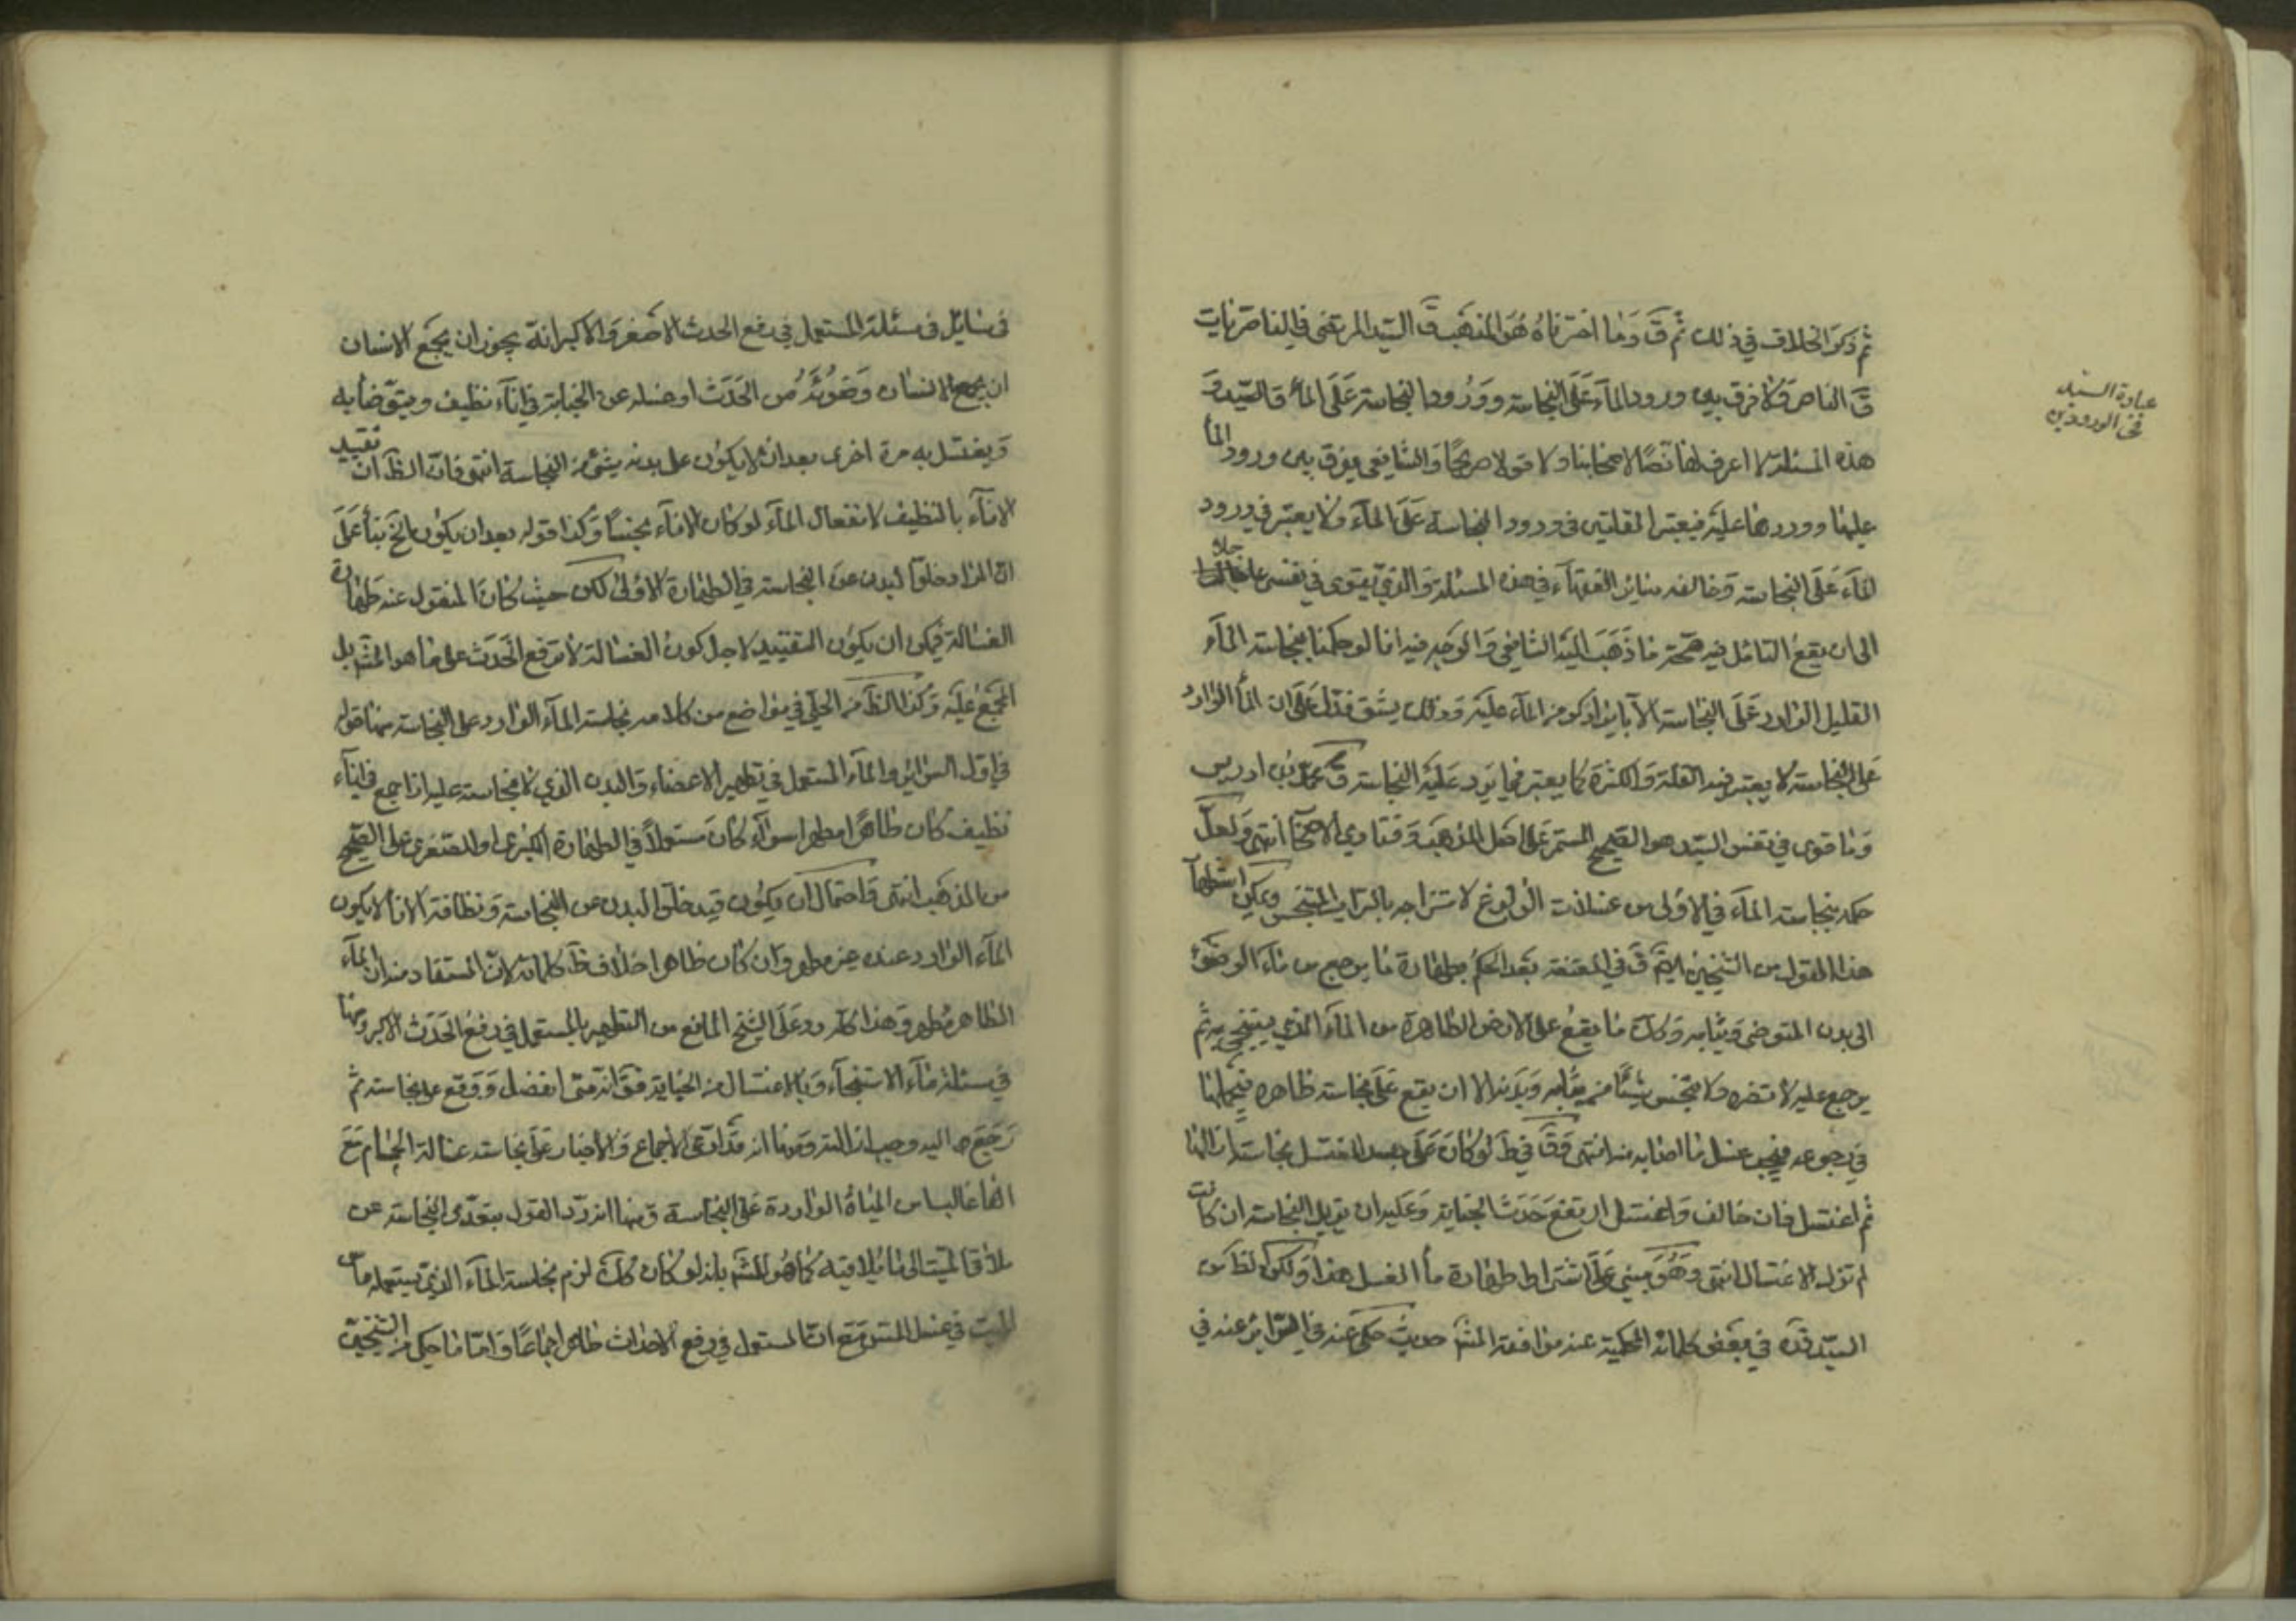 ثم ذكر الخلاف في ذلك ثم قَ وما اخترناه هو المذهب قَ السيد المرتضى في الناصريات
قَ الناصر ولا فرق بين ورود الماء على النجاسة وورود النجاسة على الماء قال السيد وَ
هذه المسئلة لا اعرف لها نصّا لاصحابنا ولا قولا صريحًا والشافعي يفرق بين ورود الماء
عليها وورودها عليه فيعتبر القلتين في ورود النجاسة على الماء ولا يعتبر في ورود
الماء على النجاسة وخالفه سائر الفقهاء في هذه المسئلة والذي يقوى في نفسي عاجلا
الى ان يقع التامل فيه صحة ما ذهب اليه الشافعي والوجه فيه انا لو حكمنا بنجاسة الماء
القليل الوارد على النجاسة لا
على النجاسة لا يعتبر فيه القلة والكثرة كما يعتبر فيما يرد عليه النجاسة قَ محمد بن ادريس
وما قوى في نفس السيد هو الصحيح المستمر على اصل المذهب وفتاوي الاصحاب انتهى ولعل
حكمه بنجاسة الماء في الاولى من غسلات الولوغ لامتزاجه بالتراب المتنجس ويمكن استظهار
هذا القول من الشيخين ايضَ قَ في المقنعة بعد الحكم بطهارة ما يرجع من ماء الوضوء
الى بدن المتوضى وثيابه وكذَ ما يقع على الارض الطاهرة من الماء الذي يستنجي به ثم
يرجع عليه لا يضره ولا ينجس شيئًا من ثيابه وبدنه الا ان يقع على نجاسة ظاهرة فيحملها
في رجوعه فيجب غسل ما اصابه منه انتهى وقَ في طَ لو كان على جسد المغتسل نجاسة ازالها
ثم اغتسل فان خالف واغتسل ارتفع حدث الجنابة وعليه ان يزيل النجاسة ان كانت
لم تزل بالاغتسال انتهى وهو مبني على اشتراط طهارة ماء الغسل هذا ولكن الظَ من
السيد قده في بعض كلماته المحكية عنه موافقة المشَ حيث حكى عنه في السرائر عنه في
عبارة السيد
في الورودين
في مسائل في مسئلة المستعمل في رفع الحدث الاصغر والاكبر انه يجوز ان يجمع الانسان
ان يجمع الانسان وضوئه من الحدث او غسله عن الجنابة في اناء نظيف ويتوضأ به
ويغتسل به مرة اخرى بعد ان لا يكون على بدنه شيء من النجاسة انتهى فان الظَ ان تقييد
الاناء بالنظيف لانفعال الماء لو كان الاناء نجسًا وكذا قوله بعد ان يكون الخ بناء على
ان المراد خلو البدن عن النجاسة في الطهارة الاولى لكن حيث كان المنقول عنه طهارة
الغسالة فيمكن ان يكون التقييد لاجل كون الغسالة لا ترفع الحدث على ما هو المشَ بل
المجمع عليه وكذا الظَ من الحلي في مواضع من كلامه نجاسة الماء الوارد على النجاسة منها قوله
في اول السرائر والماء المستعمل في تطهير الاعضاء والبدن الذي لا نجاسة عليه اذا جمع في اناء
نظيف كان طاهرًا مطهرا سواء كان مستعملاً في الطهارة الكبرى او الصغرى على الصحيح
من المذهب انتهى واحتمال ان يكون قيد خلو البدن عن النجاسة ونظافة الاناء لا يكون
الماء الوارد عنده غير مطهر وان كان طاهرا خلاف ظَ كلماته لان المستفاد منه ان الماء
الطاهر مطهر وهذا كله رد على الشيخ المانع من التطهير بالمستعمل في رفع الحدث الاكبر ومنها
في مسئلة ماء الاستنجاء وبالاغتسال من الجنابة فقَ انه متى انفصل ووقع على نجاسة ثم
رجع اليه وجب ازالته ومنها انه قد ادعى الاجماع والاخبار على نجاسة غسالة الحمام مع
انها غالبا من المياه الواردة على النجاسة ومنها انه رد القول بتعدى النجاسة عن
ملاقي الميت الى ما يلاقيه كما هو المشَ بانه لو كان كذلك لزم نجاسة الماء الذي يستعمله ماس
الميت في غسل المس مع ان المستعمل في رفع الاحداث طاهر اجماعًا واما ما حكي من الشيخين